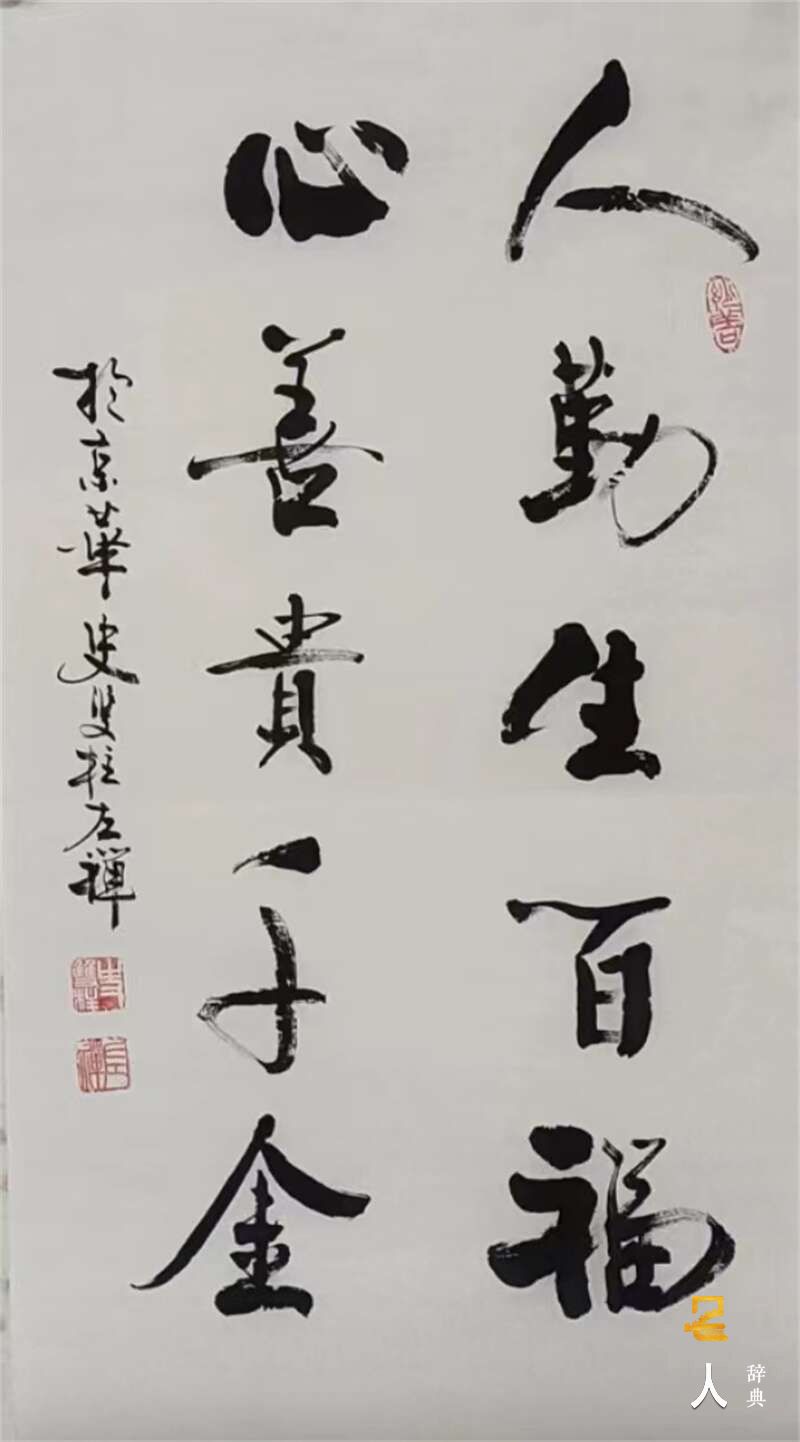 人勤生百福
心善貴千金
於京華史雙柱左禪
名人
辞典